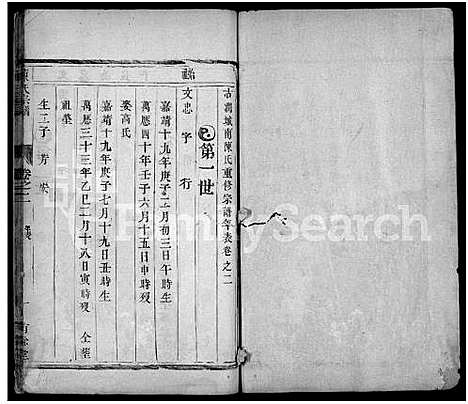 古潤城南陳氏重修宗譜年表卷之二
第一世
文忠 字 行
嘉靖十九年庚子二月初三日午時生
萬曆四十年壬子六月十五日申時歿
娶高氏
嘉靖十九年庚子七月十九日丑時生
萬曆三十三年乙巳二月十八日寅時歿 仝塋
祖塋
生二子
卷之二
FamilySearch